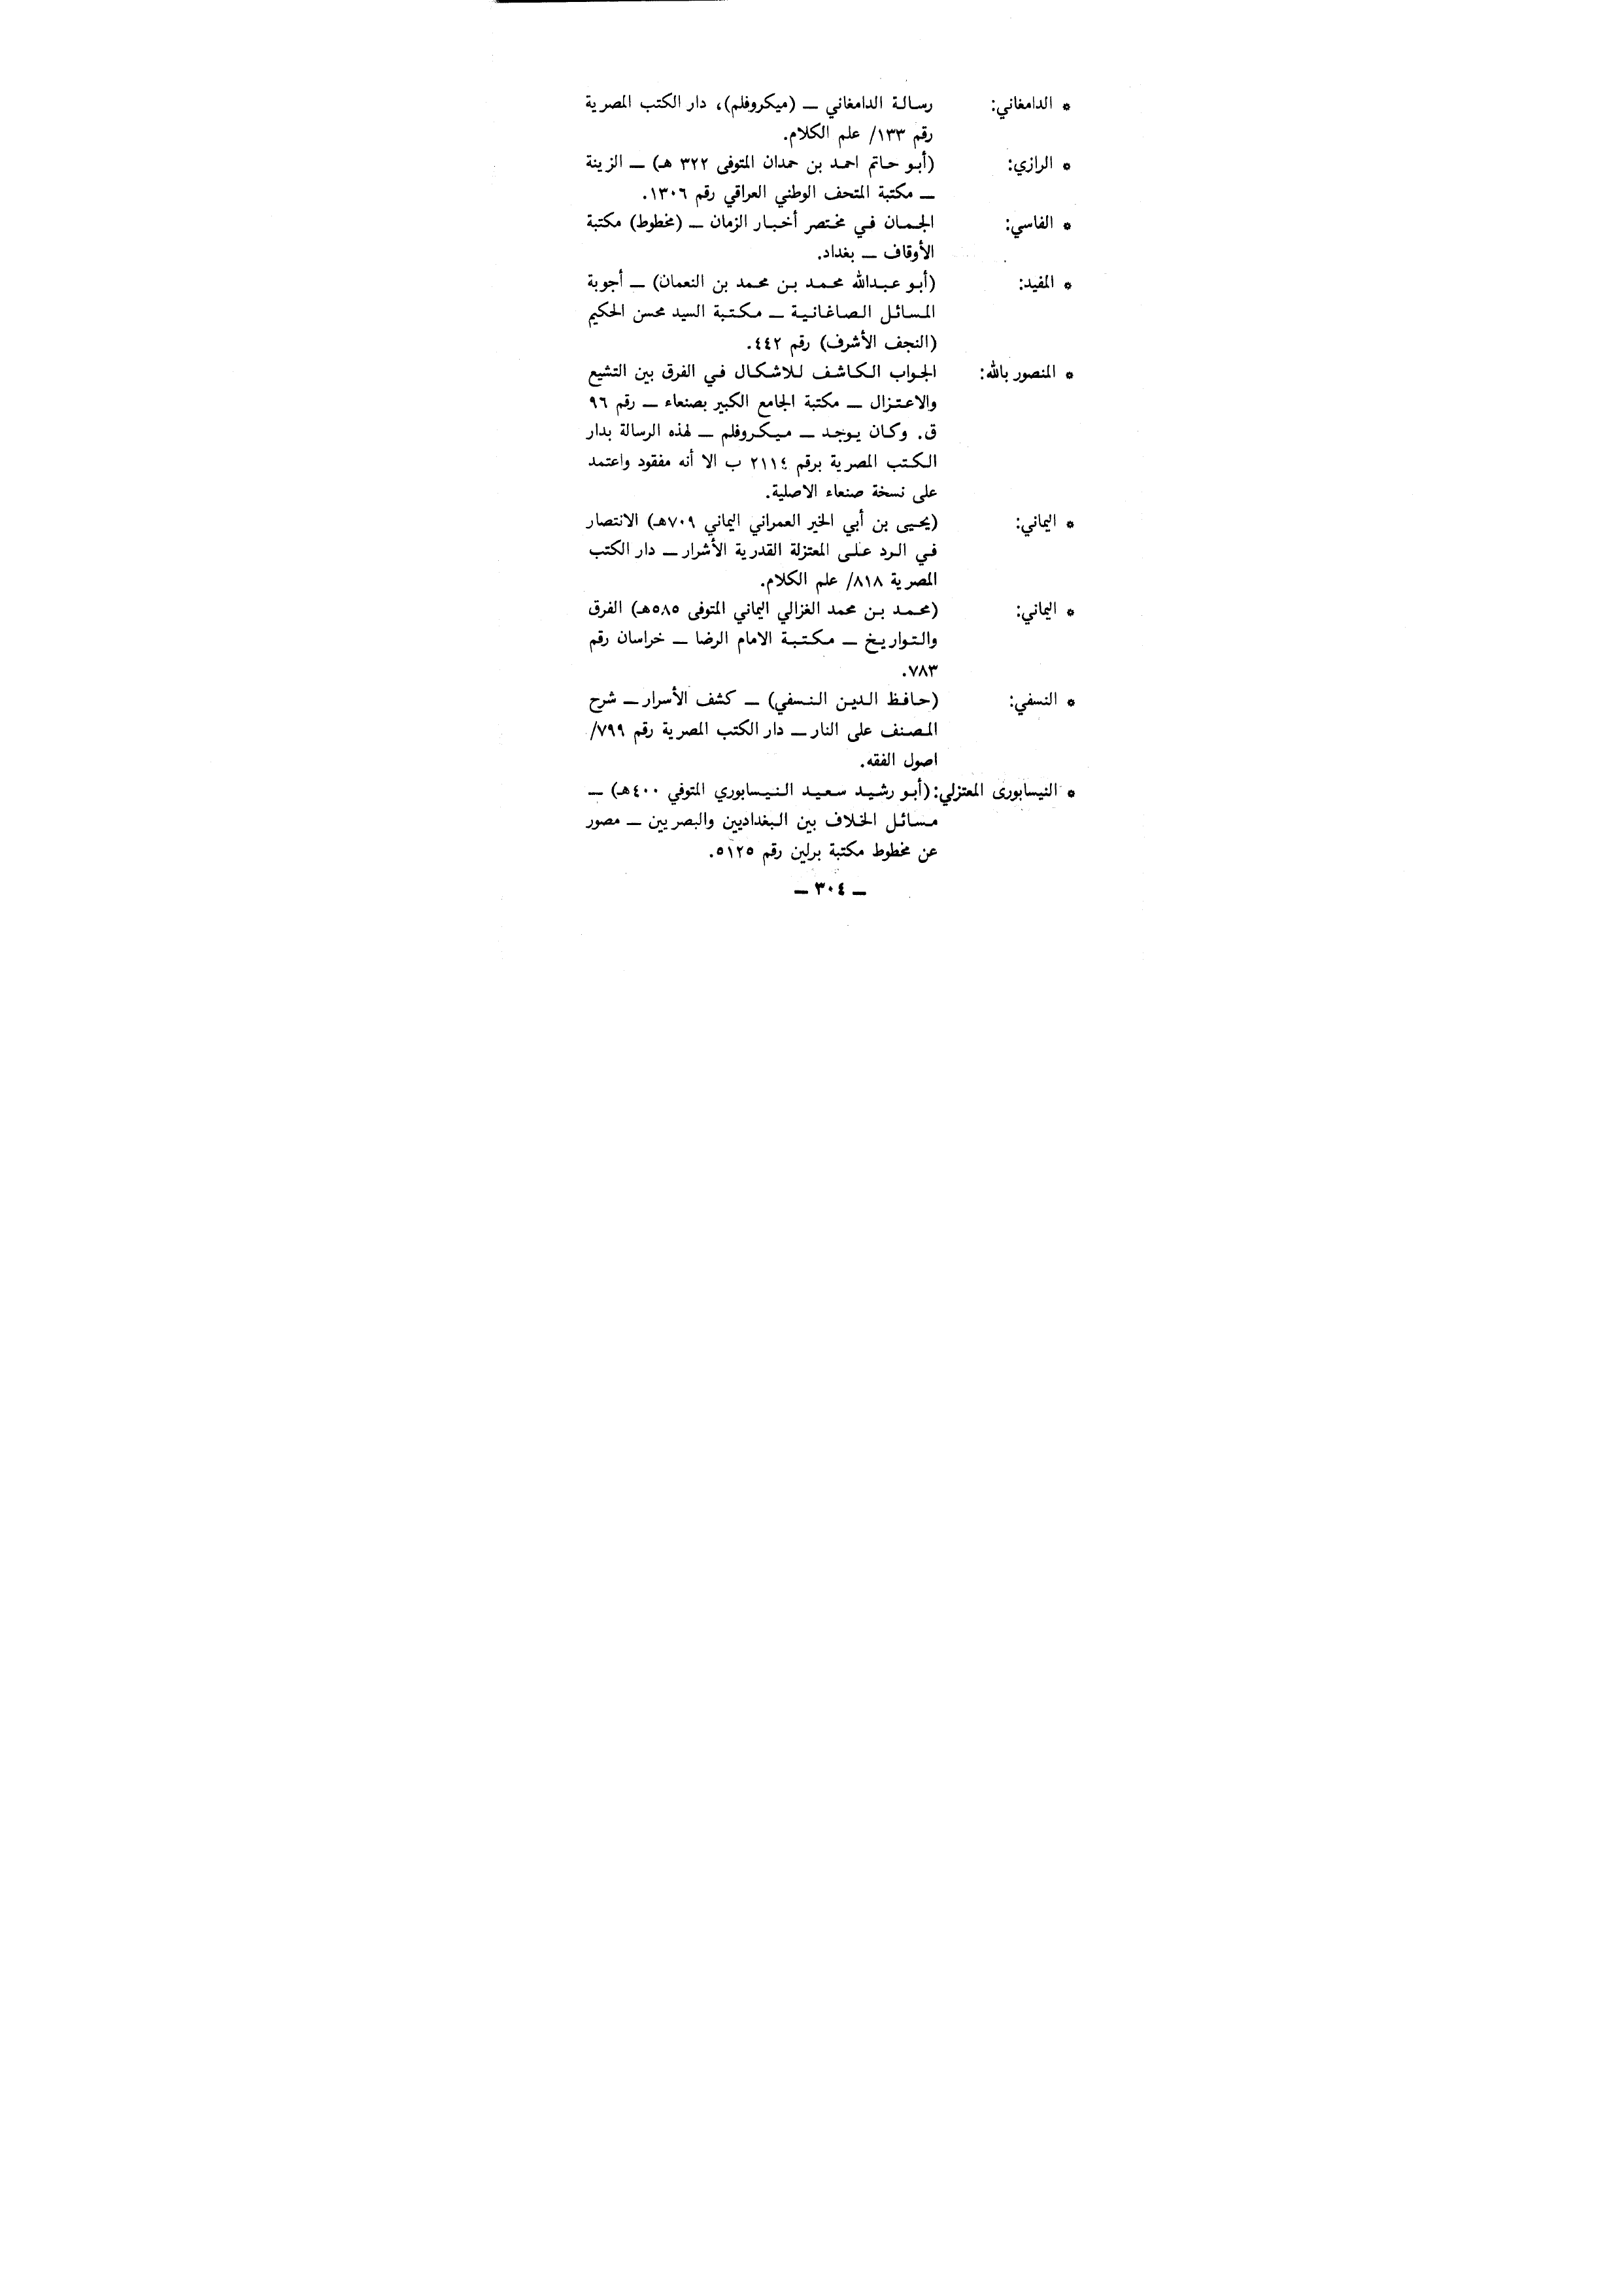 * الدامغاني: رسالة الدامغاني ــ (ميكروفلم)، دار الكتب المصرية
رقم ١٣٣/ علم الكلام.
* الرازي: (أبو حاتم احمد بن حمدان المتوفى ٣٢٢ هـ) ــ الزينة
ــ مكتبة المتحف الوطني العراقي رقم ١٣٠٦.
* الفاسي: الجمان في مختصر أخبار الزمان ــ (مخطوط) مكتبة
الأوقاف ــ بغداد.
* المفيد: (أبو عبدالله محمد بن محمد بن النعمان) ــ أجوبة
المسائل الصاغانية ــ مكتبة السيد محسن الحكيم
(النجف الأشرف) رقم ٤٤٢.
* المنصور بالله: الجواب الكاشف للاشكال في الفرق بين التشيع
والاعتزال ــ مكتبة الجامع الكبير بصنعاء ــ رقم ٩٦
ق. وكان يوجد ــ ميكروفلم ــ لهذه الرسالة بدار
الكتب المصرية برقم ٢١١٤ ب الا أنه مفقود واعتمد
على نسخة صنعاء الاصلية.
* اليماني: (يحيى بن أبي الخير العمراني اليماني ٧٠٩هـ) الانتصار
في الرد على المعتزلة القدرية الأشرار ــ دار الكتب
المصرية ٨١٨/ علم الكلام.
* اليماني: (محمد بن محمد الغزالي اليماني المتوفى ٥٨٥هـ) الفرق
والتواريخ ــ مكتبة الامام الرضا ــ خراسان رقم
٧٨٣.
* النسفي: (حافظ الدين النسفي) ــ كشف الأسرار ــ شرح
المصنف على النار ــ دار الكتب المصرية رقم ٧٩٩/
اصول الفقه.
* النيسابورى المعتزلي: (أبو رشيد سعيد النيسابوري المتوفي ٤٠٠هـ) ــ
مسائل الخلاف بين البغداديين والبصريين ــ مصور
عن مخطوط مكتبة برلين رقم ٥١٢٥.
ــ ٣٠٤ ــ